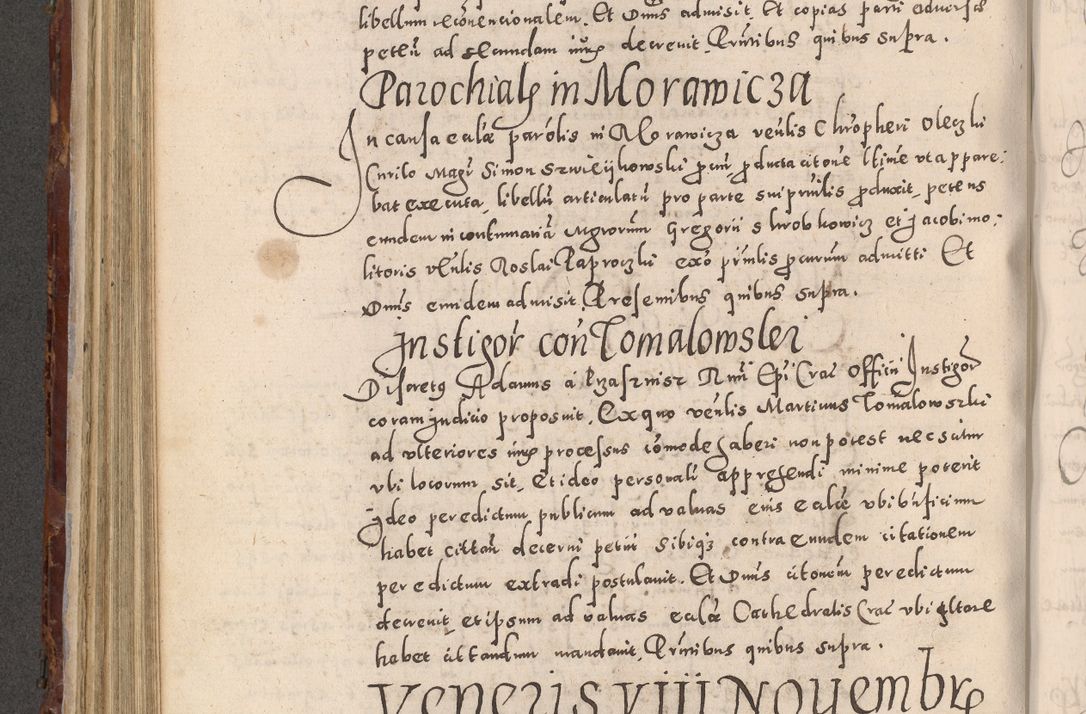 libellum recōnencionalem. Et Dnus admisit. Et copias parti adversæ
petēti ad secundam iuris decrevit. Pn̄tibus quibus supra.
Parochialis in Morawicza
In causa ecalæ parōlis in Morawicza venlis Chrōpheri Oleczki
Curilo Magr Simon Szwieijkowski procur producta citone ltime ut appare:
bat executa, libellū articulatū pro parte sui prnlis produxit, petens
eundem in contumatiā Mgrorum Gregorii Skrobkowicz et Jacobi mo:
litoris ven̄lis Noslai Paproczki exo prnlis procurum admitti Et
Dnus eundem admisit. Presentibus quibus supra.
Instigor con Tomalowski
Discretus Adamus à Przasznisz Rmi Epi Crac Officii Instigor
coram Judicio proposuit. Ex quo venlis Martinus Tomalowszki
ad ulteriores iuris processus comode haberi non potest nec scitur
ubi locorum sit. Et ideo personali apprehendi minime poterit
Ideo per edictum publicum ad valuas eius ecalæ ubi būficium
habet cittari decerni petiit Sibique contra eundem citationem
per edictum extradi postulavit. Et Dnus citonem per edictum
decrevit, et ipsum ad valuas ecalæ Cathedralis Crac ubi altare
habet cittandum mandavit. Pn̄tibus quibus supra.
Veneris VIII Novembr